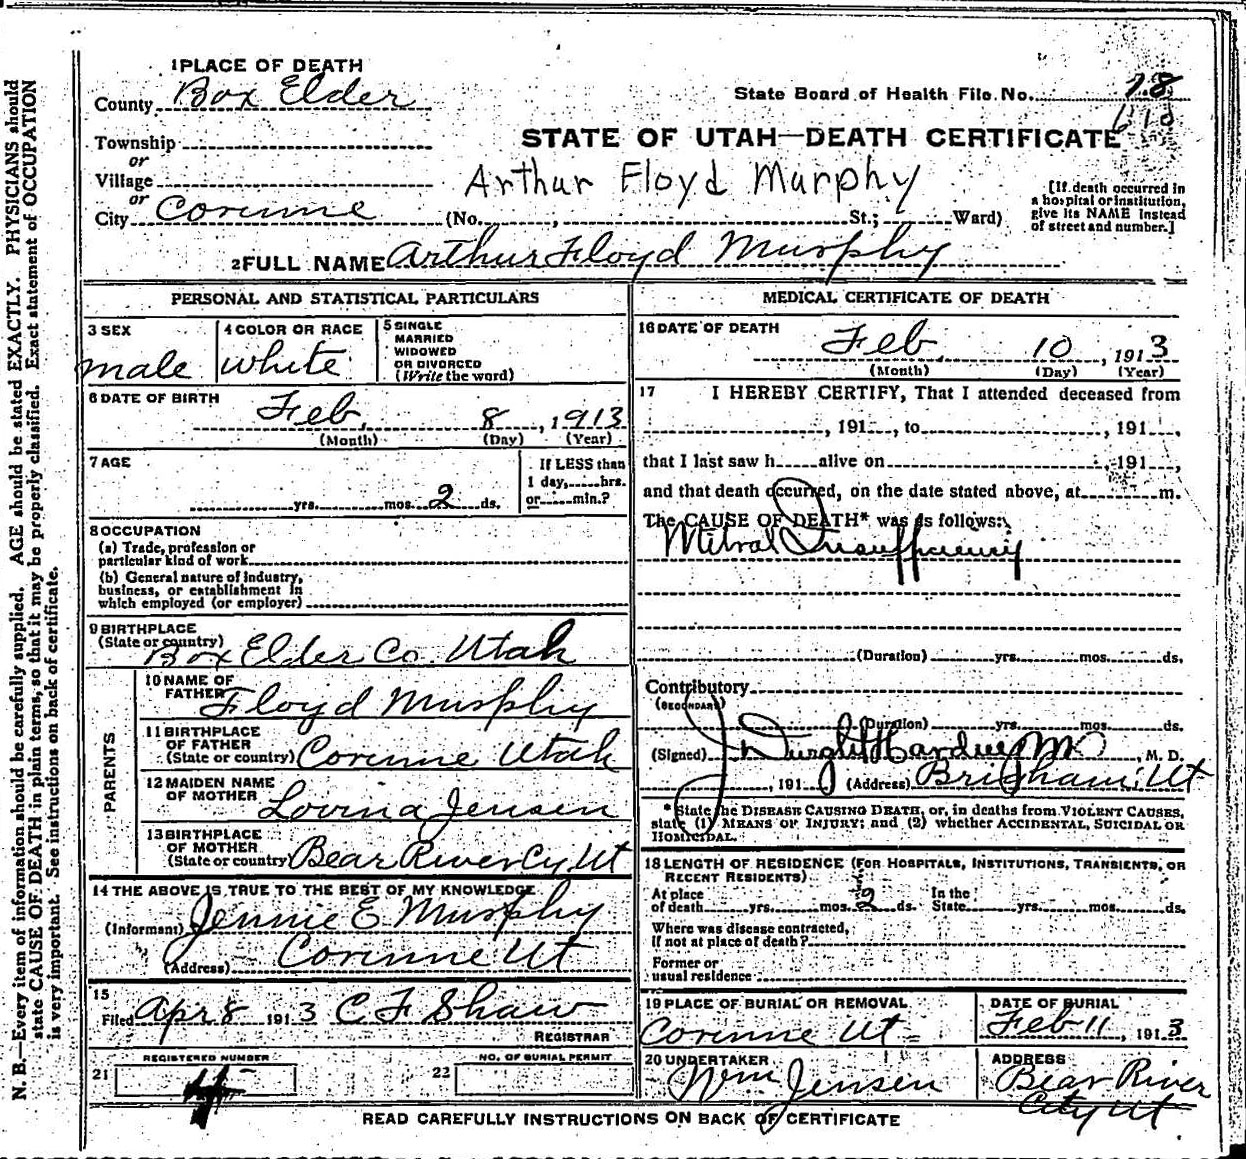 1 PLACE OF DEATH
County Box Elder
State Board of Health File No. 78
Township
or
Village
or
City Corinne (No. , St.; Ward)
STATE OF UTAH—DEATH CERTIFICATE
Arthur Floyd Murphy
[If death occurred in
a hospital or institution,
give its NAME instead
of street and number.]
2 FULL NAME Arthur Floyd Murphy
PERSONAL AND STATISTICAL PARTICULARS
3 SEX
male
4 COLOR OR RACE
white
5 SINGLE
MARRIED
WIDOWED
OR DIVORCED
(Write the word)
6 DATE OF BIRTH
Feb. 8, 1913
(Month) (Day) (Year)
7 AGE
yrs. mos. 2 ds.
If LESS than
1 day, hrs.
or min.?
8 OCCUPATION
(a) Trade, profession or
particular kind of work
(b) General nature of industry,
business, or establishment in
which employed (or employer)
9 BIRTHPLACE
(State or country)
Box Elder Co. Utah
PARENTS
10 NAME OF
FATHER Floyd Murphy
11 BIRTHPLACE
OF FATHER
(State or country) Corinne Utah
12 MAIDEN NAME
OF MOTHER Lovina Jensen
13 BIRTHPLACE
OF MOTHER
(State or country) Bear River Cy Ut
14 THE ABOVE IS TRUE TO THE BEST OF MY KNOWLEDGE
(Informant) Jennie E Murphy
(Address) Corinne Ut
15
Filed Apr 8 1913 C F Shaw
REGISTRAR
REGISTERED NUMBER
21
NO. OF BURIAL PERMIT
22
MEDICAL CERTIFICATE OF DEATH
16 DATE OF DEATH
Feb. 10, 1913
(Month) (Day) (Year)
17 I HEREBY CERTIFY, That I attended deceased from
, 191 , to , 191 ,
that I last saw h alive on , 191 ,
and that death occurred, on the date stated above, at m.
The CAUSE OF DEATH* was as follows:
Mitral Insufficiency
(Duration) yrs. mos. ds.
Contributory
(SECONDARY)
(Duration) yrs. mos. ds.
(Signed) J Dwight Harding MD, M. D.
, 191 (Address) Brigham, Ut
* State the DISEASE CAUSING DEATH, or, in deaths from VIOLENT CAUSES,
state (1) MEANS OF INJURY; and (2) whether ACCIDENTAL, SUICIDAL OR
HOMICIDAL.
18 LENGTH OF RESIDENCE (FOR HOSPITALS, INSTITUTIONS, TRANSIENTS, OR
RECENT RESIDENTS)
At place
of death yrs. mos. 2 ds.
In the
State yrs. mos. ds.
Where was disease contracted,
if not at place of death?
Former or
usual residence
19 PLACE OF BURIAL OR REMOVAL
Corinne Ut
DATE OF BURIAL
Feb 11, 1913
20 UNDERTAKER
Wm Jensen
ADDRESS
Bear River
City Ut
READ CAREFULLY INSTRUCTIONS ON BACK OF CERTIFICATE
N. B.—Every item of information should be carefully supplied. AGE should be stated EXACTLY. PHYSICIANS should
state CAUSE OF DEATH in plain terms, so that it may be properly classified. Exact statement of OCCUPATION
is very important. See instructions on back of certificate.